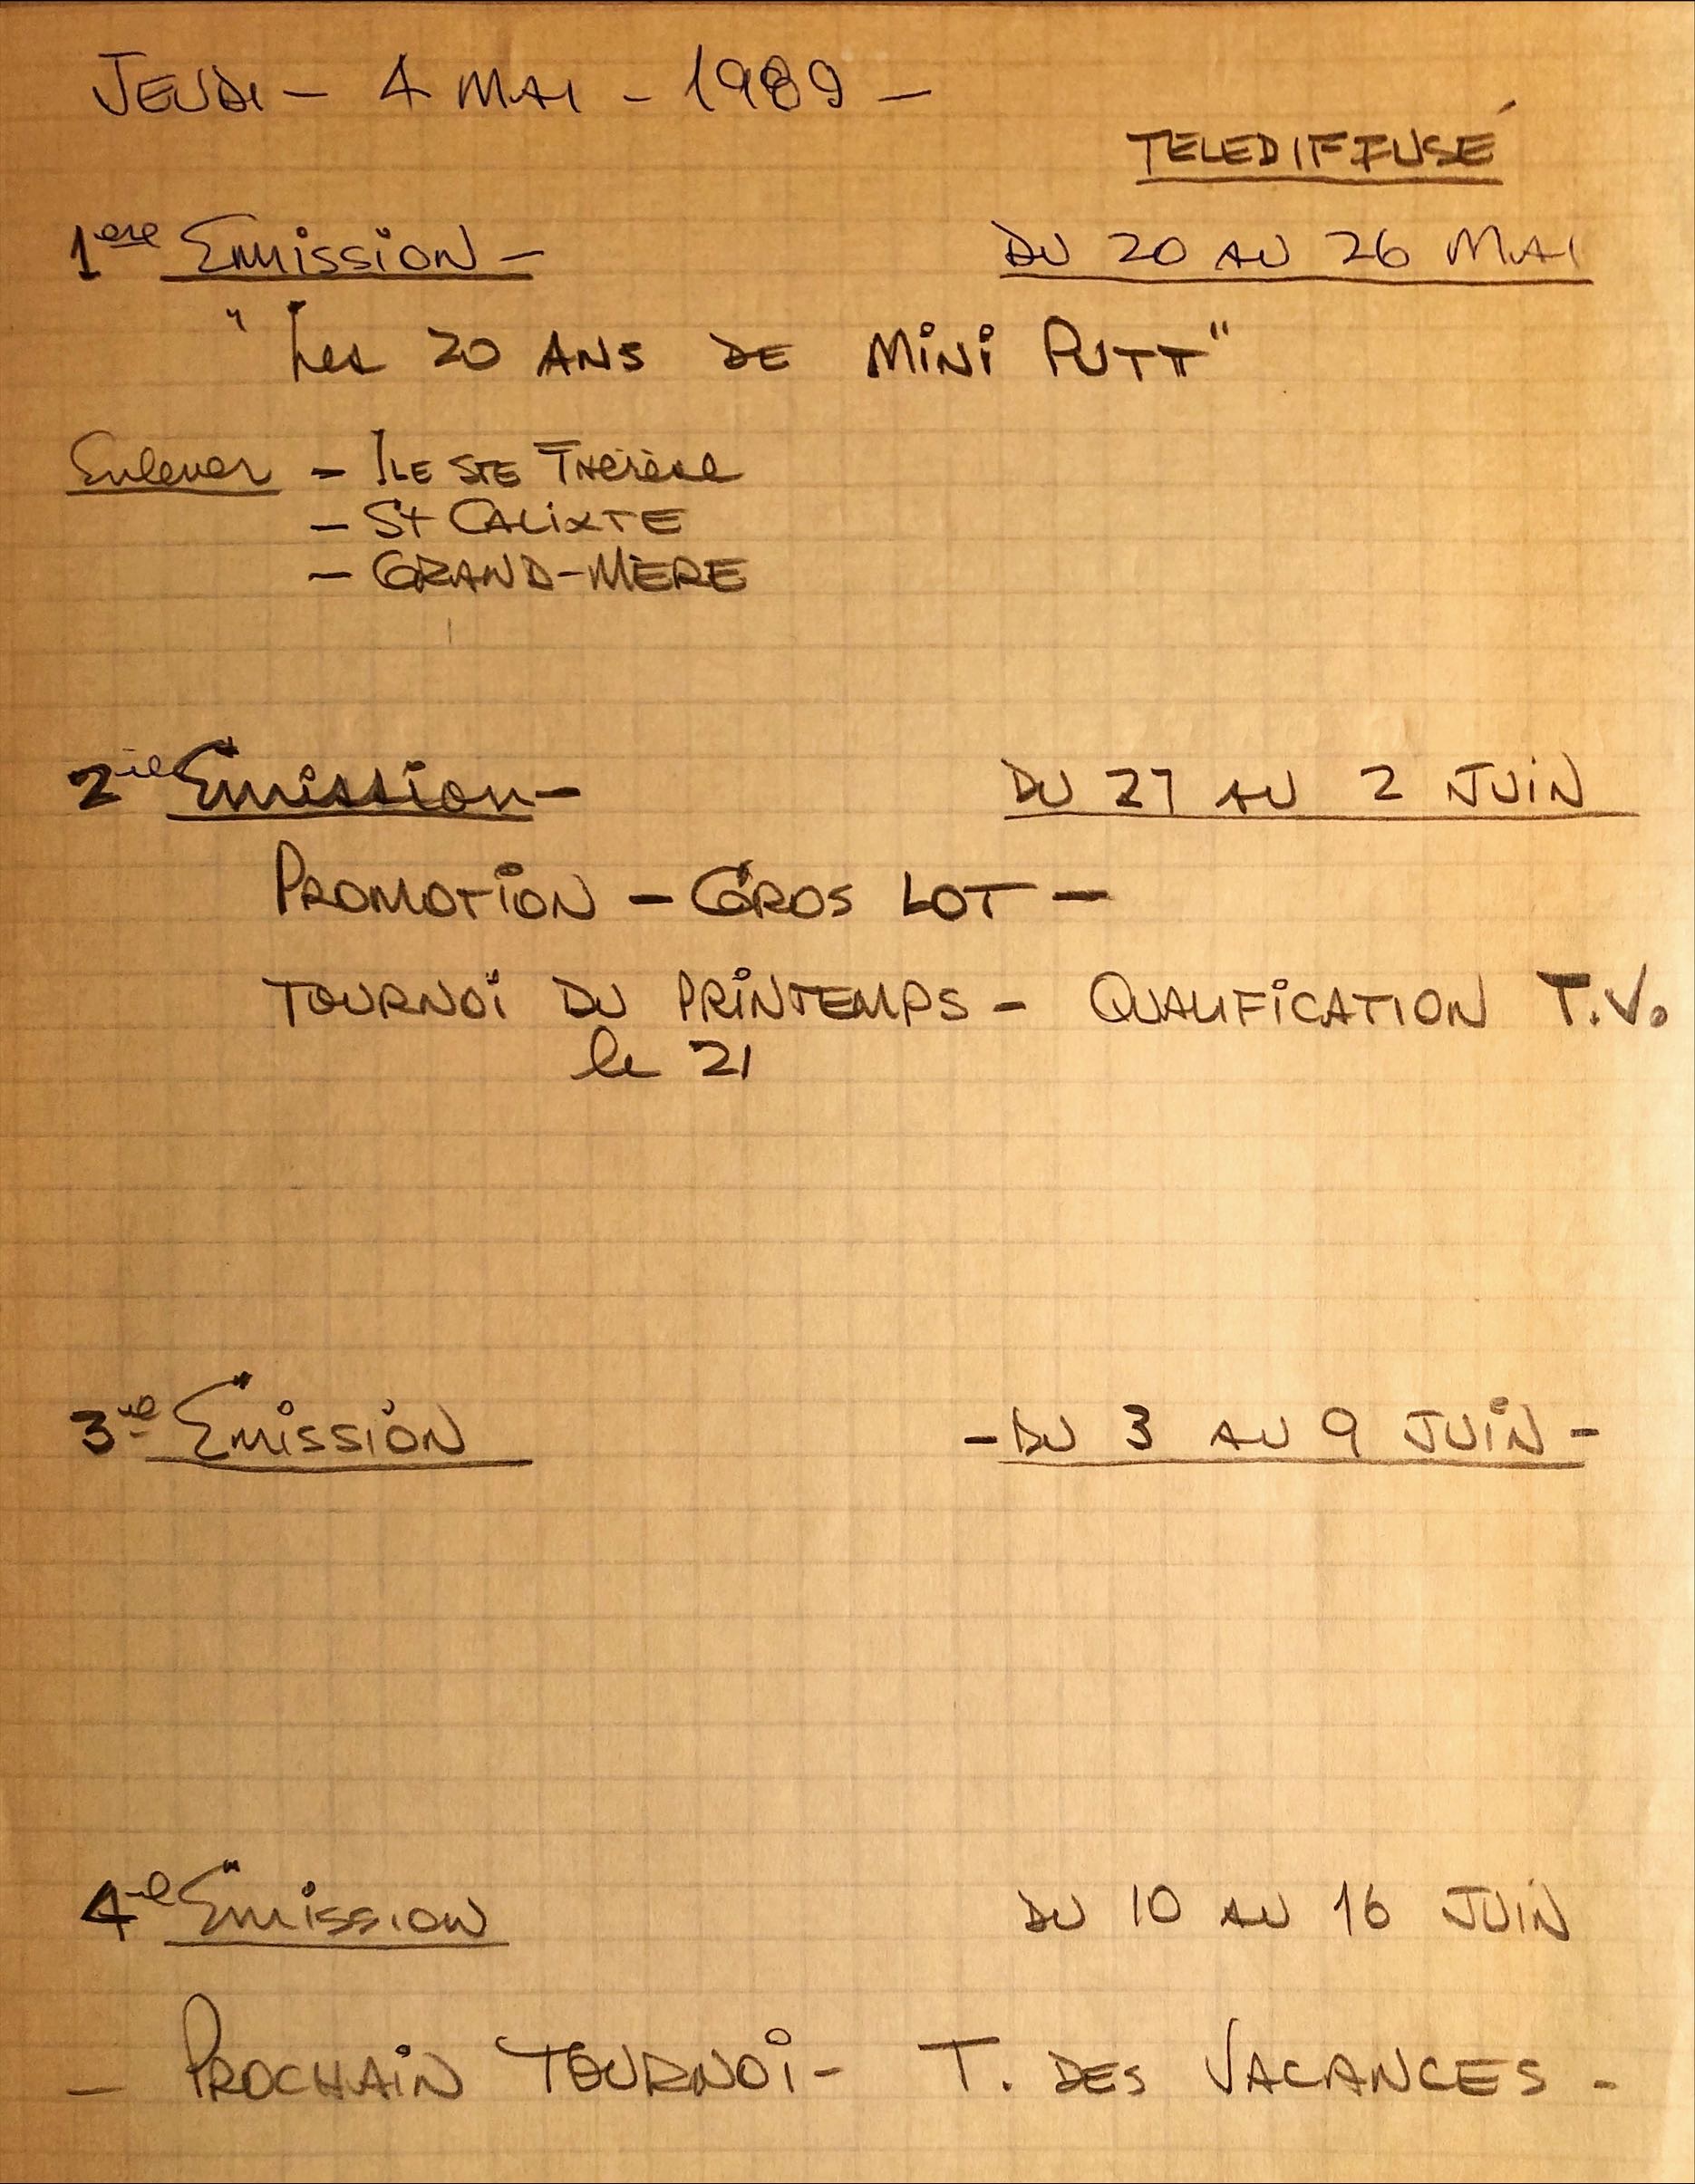 JEUDI - 4 MAI - 1989 -
TELEDIFFUSÉ
1ere Emission - DU 20 AU 26 MAI
"Les 20 ANS DE MiNi PUTT"
Enlever - ILE STE Thérèse
- St CALiXTE
- GRAND-MÈRE
2ie Émission - DU 27 AU 2 JUiN
PROMOTiON - GROS LOT -
TOURNOi DU PRiNTEMPS - QUALIFiCATION T.V.
le 21
3ie Émission - DU 3 AU 9 JUiN -
4e Émission DU 10 AU 16 JUiN
- PROCHAiN TOURNOi - T. DES VACANCES -